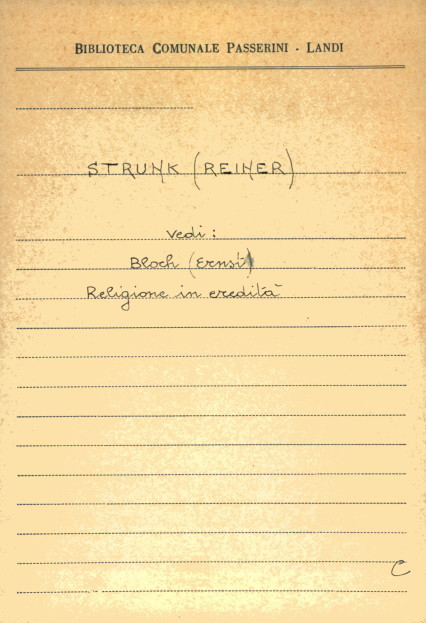 BIBLIOTECA COMUNALE PASSERINI - LANDI
STRUNK (REINER)
Vedi:
Bloch (Ernst)
Religione in eredità
C